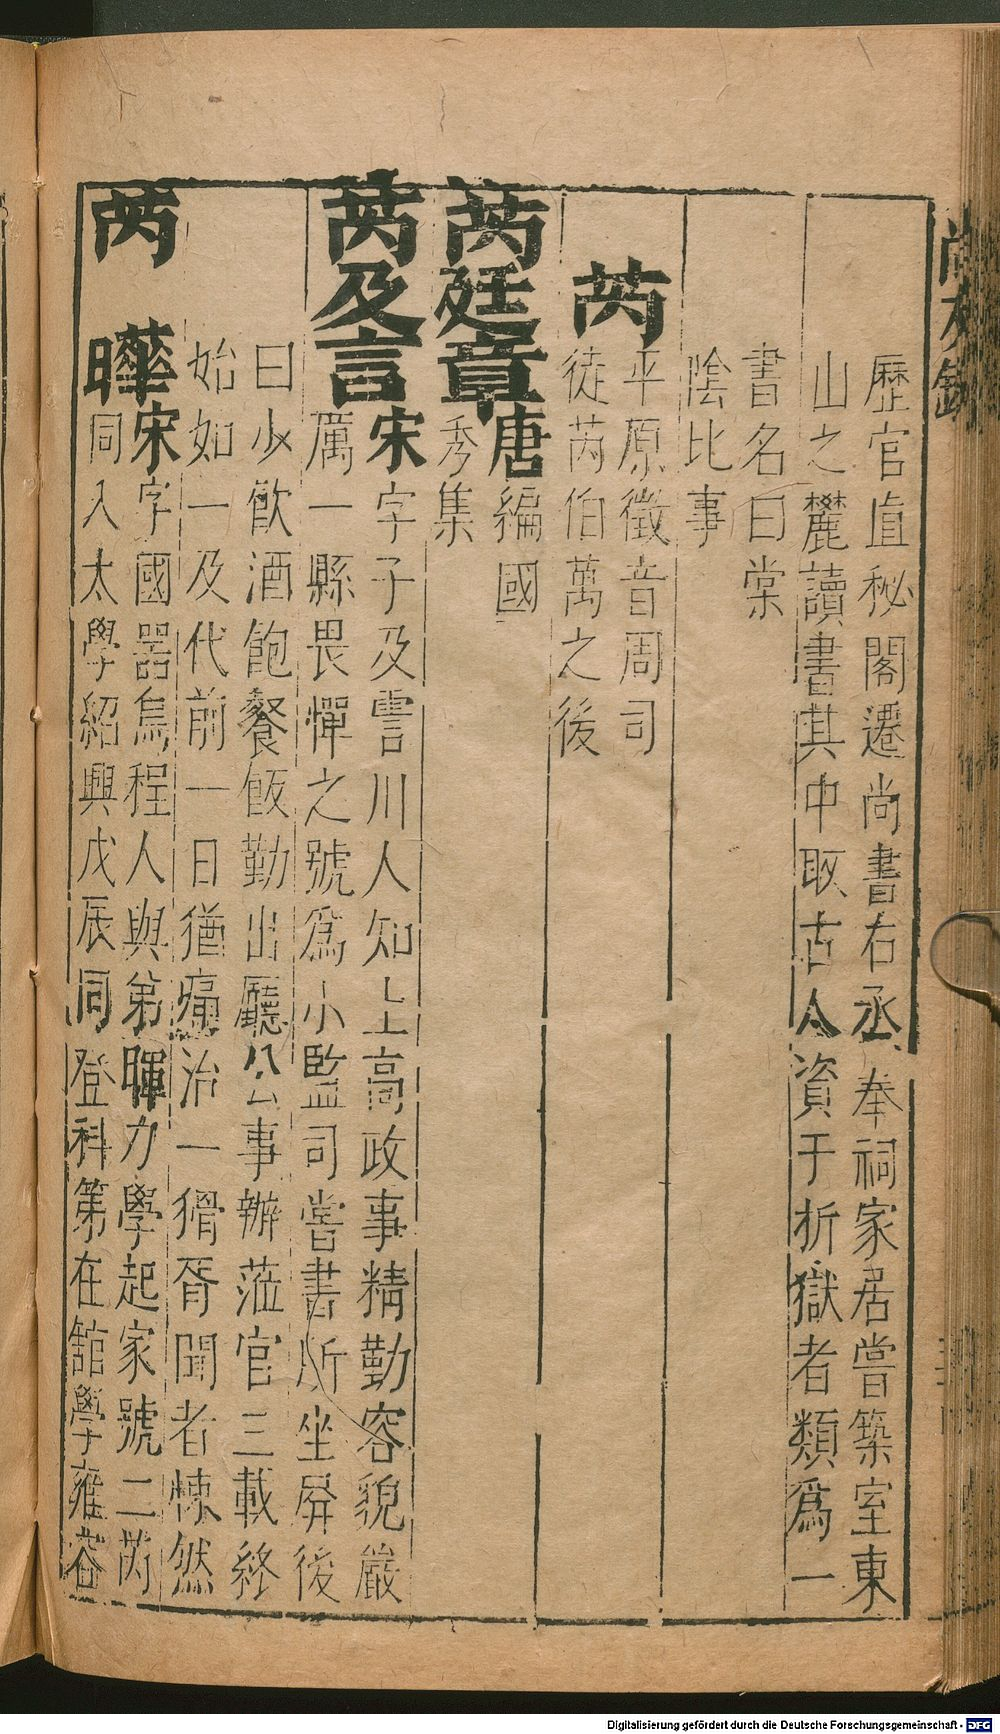 歷官直秘閣遷尚書右丞奉祠家居嘗築室東
山之麓讀書其中取古人資于折獄者類爲一
書名曰棠
陰比事
芮
平原徵音周司
徒芮伯萬之後
芮廷章
唐編國
秀集
芮及言
宋字子及霅川人知上高政事精勤容貌嚴
厲一縣畏憚之號爲小監司嘗書所坐屏後
曰少飮酒飽餐飯勤出廳公事辦蒞官三載終
始如一及代前一日猶痛治一猾胥聞者悚然
芮 曄
宋字國器烏程人與弟暉力學起家號二芮
同入太學紹興戊辰同登科第在舘學雍容
Digitalisierung gefördert durch die Deutsche Forschungsgemeinschaft - DFG